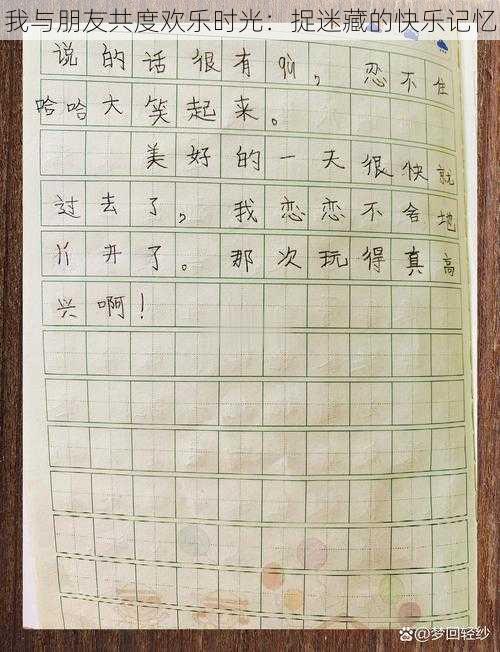 我与朋友共度欢乐时光：捉迷藏的快乐记忆
说的话很有qù，忍不住
哈哈大笑起来。
美好的一天很快就
过去了，我恋恋不舍地
离开了。那次玩得真高
兴啊！
@梦回轻纱